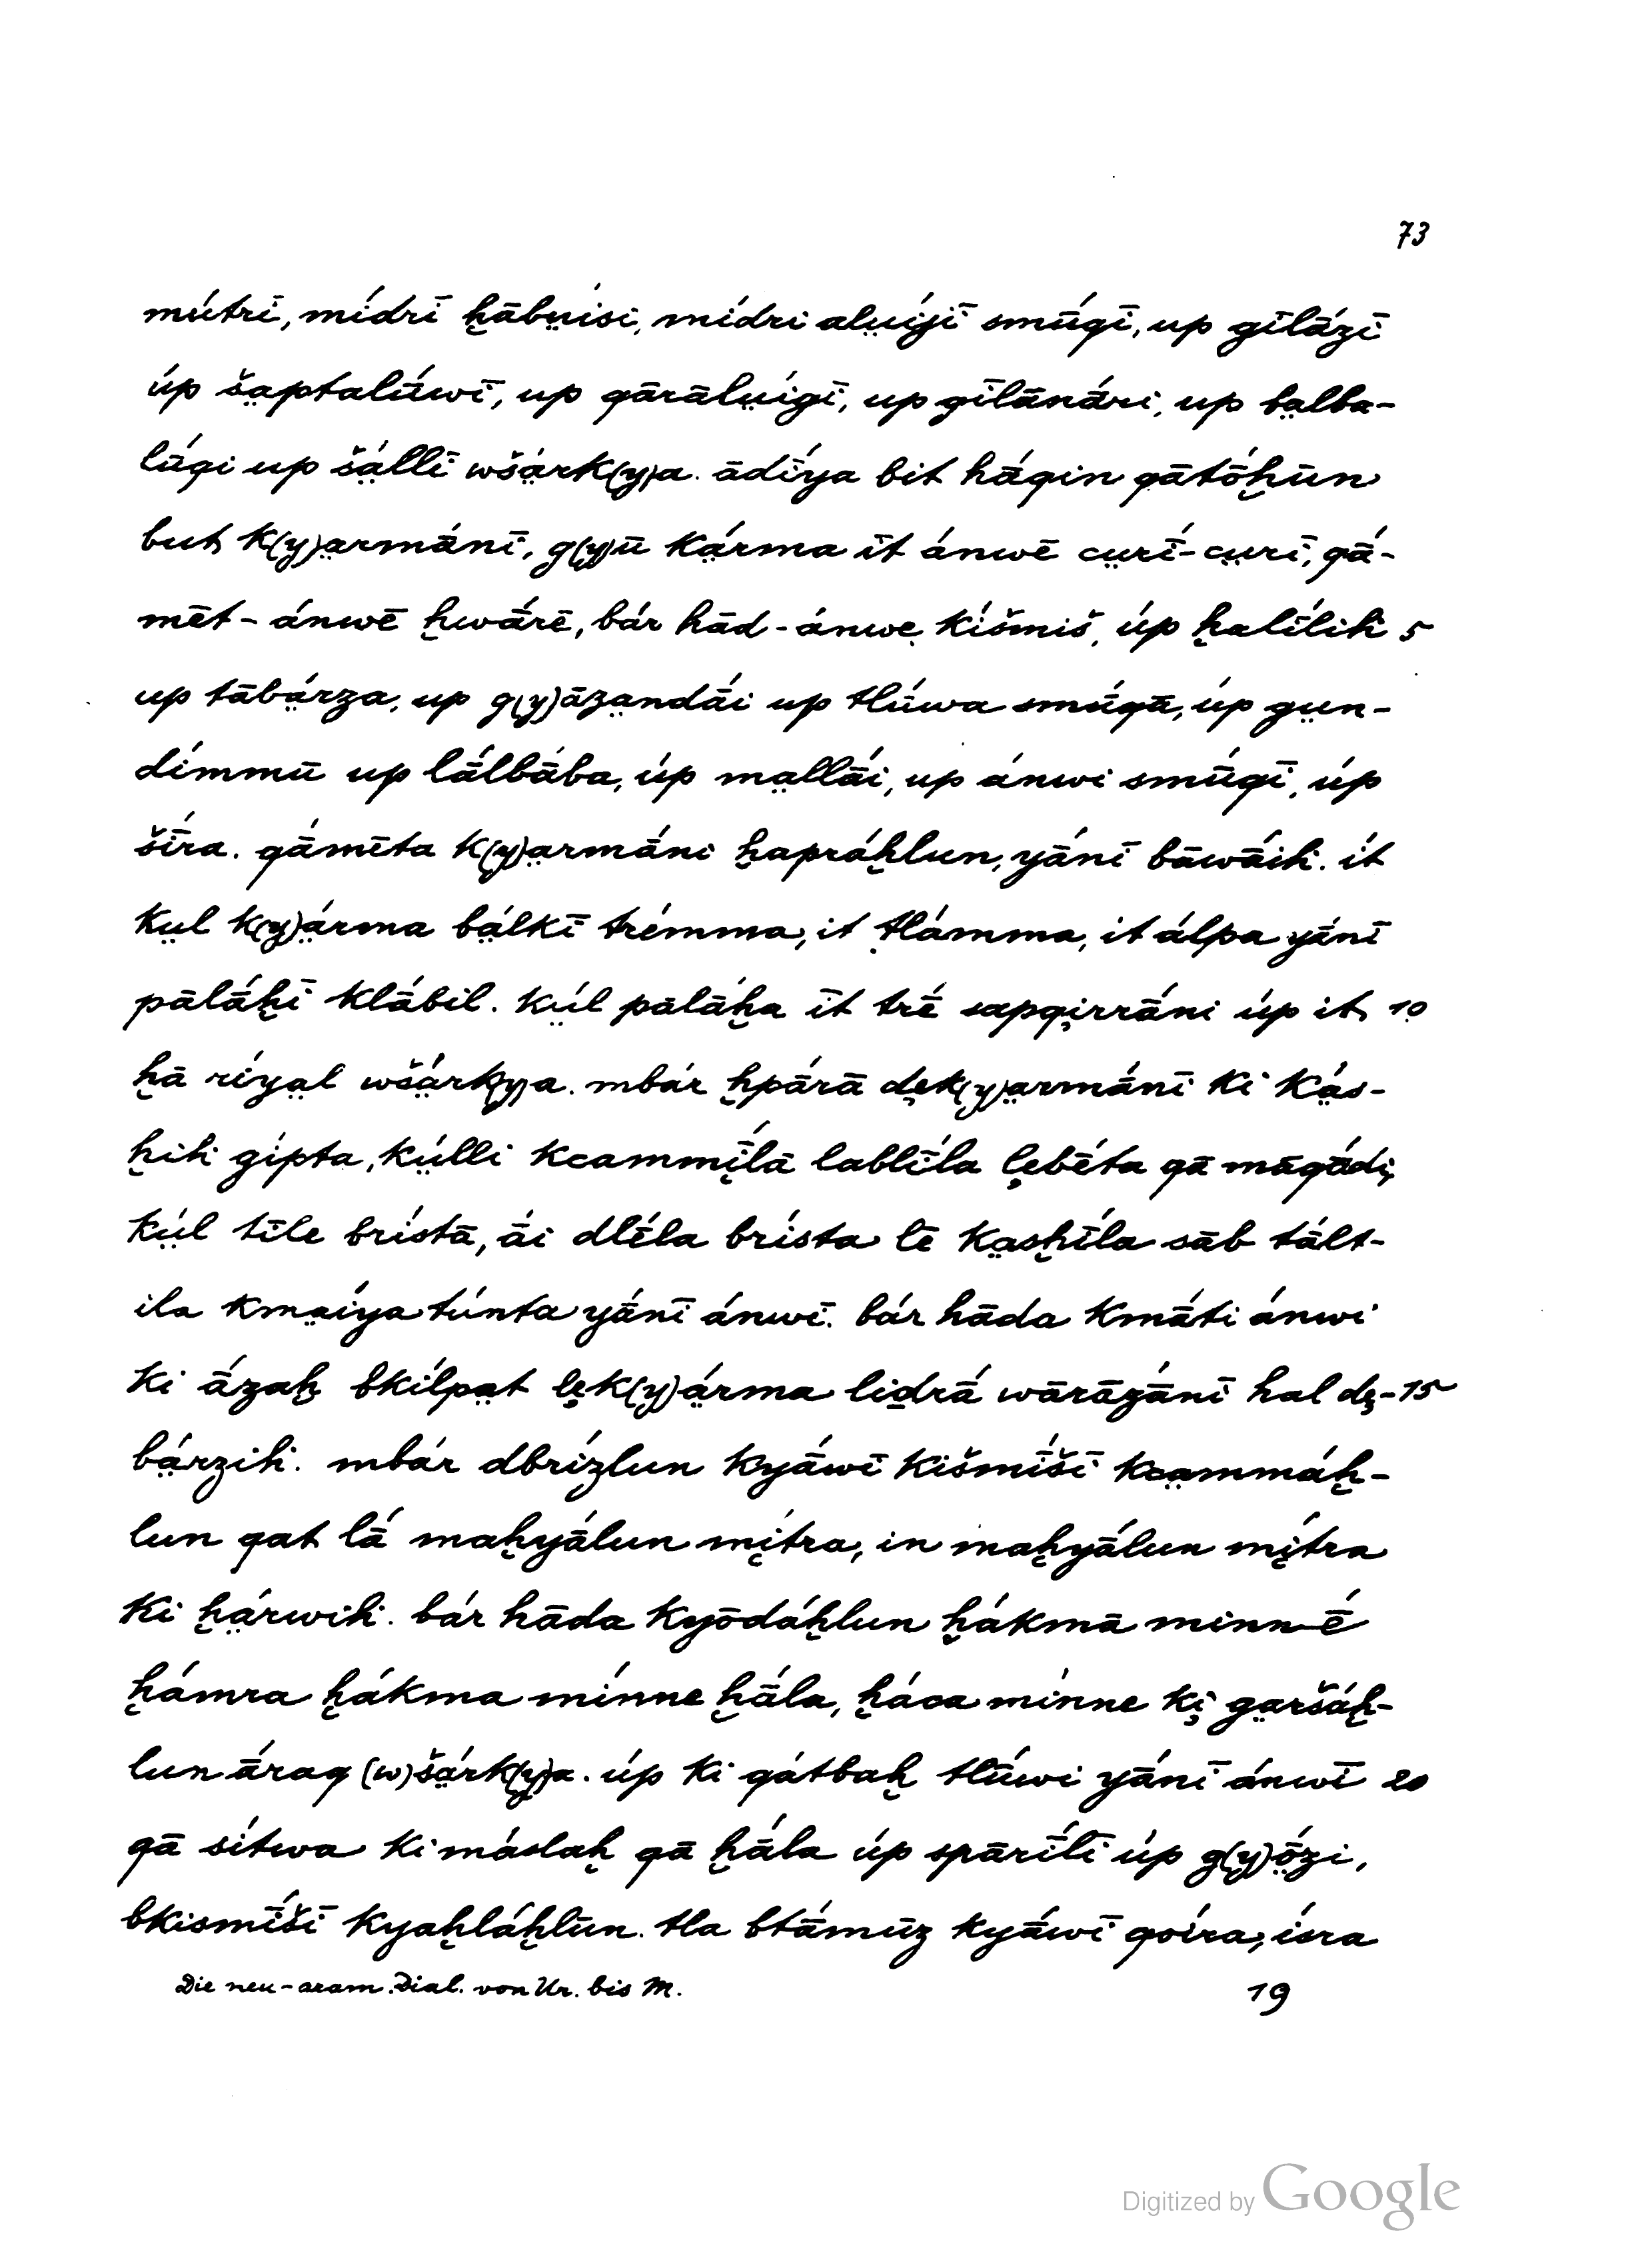 73
mútrī, mídrī ḫābṳ́isi, mídri alṳ́iǰī smū́qī, up gīlā́zī
úp ša̤ptalū́wī, up qārālṳ́igī, up gīlānā́ri, up ba̤lba-
lū́gi up šá̤llī wšá̤rk(y)a. ādī́ya bit hā́qin qātṓḫūn
but k(y)a̤rmā́nī, g(y)ū ká̤rma īt ánwē cṳrī́-cṳrī, qā́-
mēt-ánwē ḫwā́rē, bár hād-ánwe kíšmiš, úp ḫalī́lih 5
up tābá̤rza, up g(y)āza̤ndā́i up tlū́wa smū́qā, úp gṳn-
dímmū up lā́lbāba, úp ma̤llā́i, up ánwi smū́qī, úp
šī́ra. qā́mīta k(y)a̤rmā́ni ḫapráḫlun, yā́nī bāwā́ih. ít
kṳl k(y)á̤rma bá̤lkī trémma, it tlámma, it álpa yā́nī
pālā́ḫī klā́bil. kṳ́l pālā́ḫa īt trḗ sapqirrā́ni úp it 10
ḫā ríya̤l wšá̤rk(y)a. mbár ḫpā́rā dȩk(y)a̤rmā́nī ki ká̤s-
ḫih gípta, kṳ́lli kcammī́lā lablī́la lȩbḗta qā māqā́di,
kṳ́l tīle brístā, ā́i dlḗla brísta lē ka̤sḫī́la sāb tált-
ila kma̤íya túnta yā́nī ánwī. bár hāda kmā́ti ánwi
ki ā́zaḫ bkílpa̤t lȩk(y)á̤rma lid̲rā́ wārāzā́nī hal dȩ- 15
bá̤rzih. mbár dbrízlun kyā́wī kišmī́šī kca̤mmáḫ-
lun qat lā́ maḫyā́lun mítra, in maḫyā́lun mítra
ki ḫá̤rwih. bár hāda kyōdáḫlun ḫákmā minn-ḗ
ḫámra ḫákma mínne ḫā́la, ḫáca mínne ki ga̤ršáḫ-
lun ā́raq (w)šá̤rk(y)a. úp ki qátbaḫ tlū́wi yā́nī ánwī 20
qā sítwa ki máslaḫ qā ḫā́la úp spārī́lī úp g(y)ṓ̤zi,
bkismī́šī kyaḫláḫlūn. tla btā́mūz kyā́wī qoíra, ísra
Die neu-aram. Dial. von Ur. bis M. 19
Digitized by Google